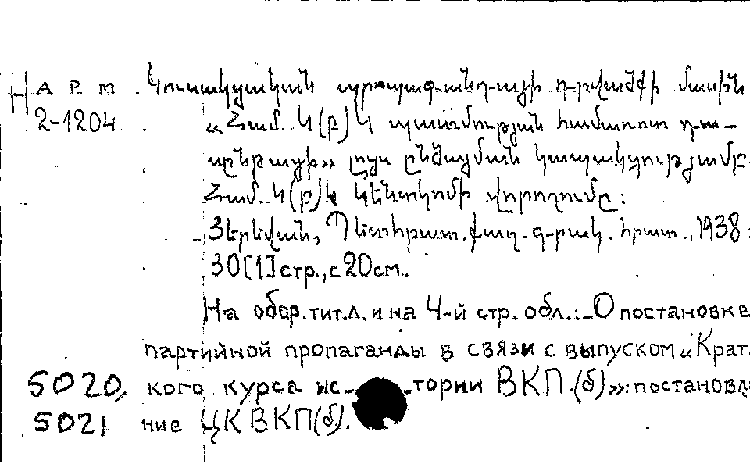 Н А Р М Կուսակցական պրոպագանդայի դրվածքի մասին
2-1204 «Համ. Կ(բ)Կ պատմության համառոտ դա-
սընթացի» լույս ընծայման կապակցությամբ.
Համ. Կ(բ)Կ Կենտկոմի վորոշումը:
Յերևան, Պետհրատ, քաղ. գրակ. հրատ., 1938:
30[1]стр., с 20см.
На обор. тит. л. и на 4-й стр. обл.: О постановке
партийной пропаганды в связи с выпуском „Крат-
5020, кого курса ис- тории ВКП(б)»: постановле-
5021 ние ЦК ВКП(б).